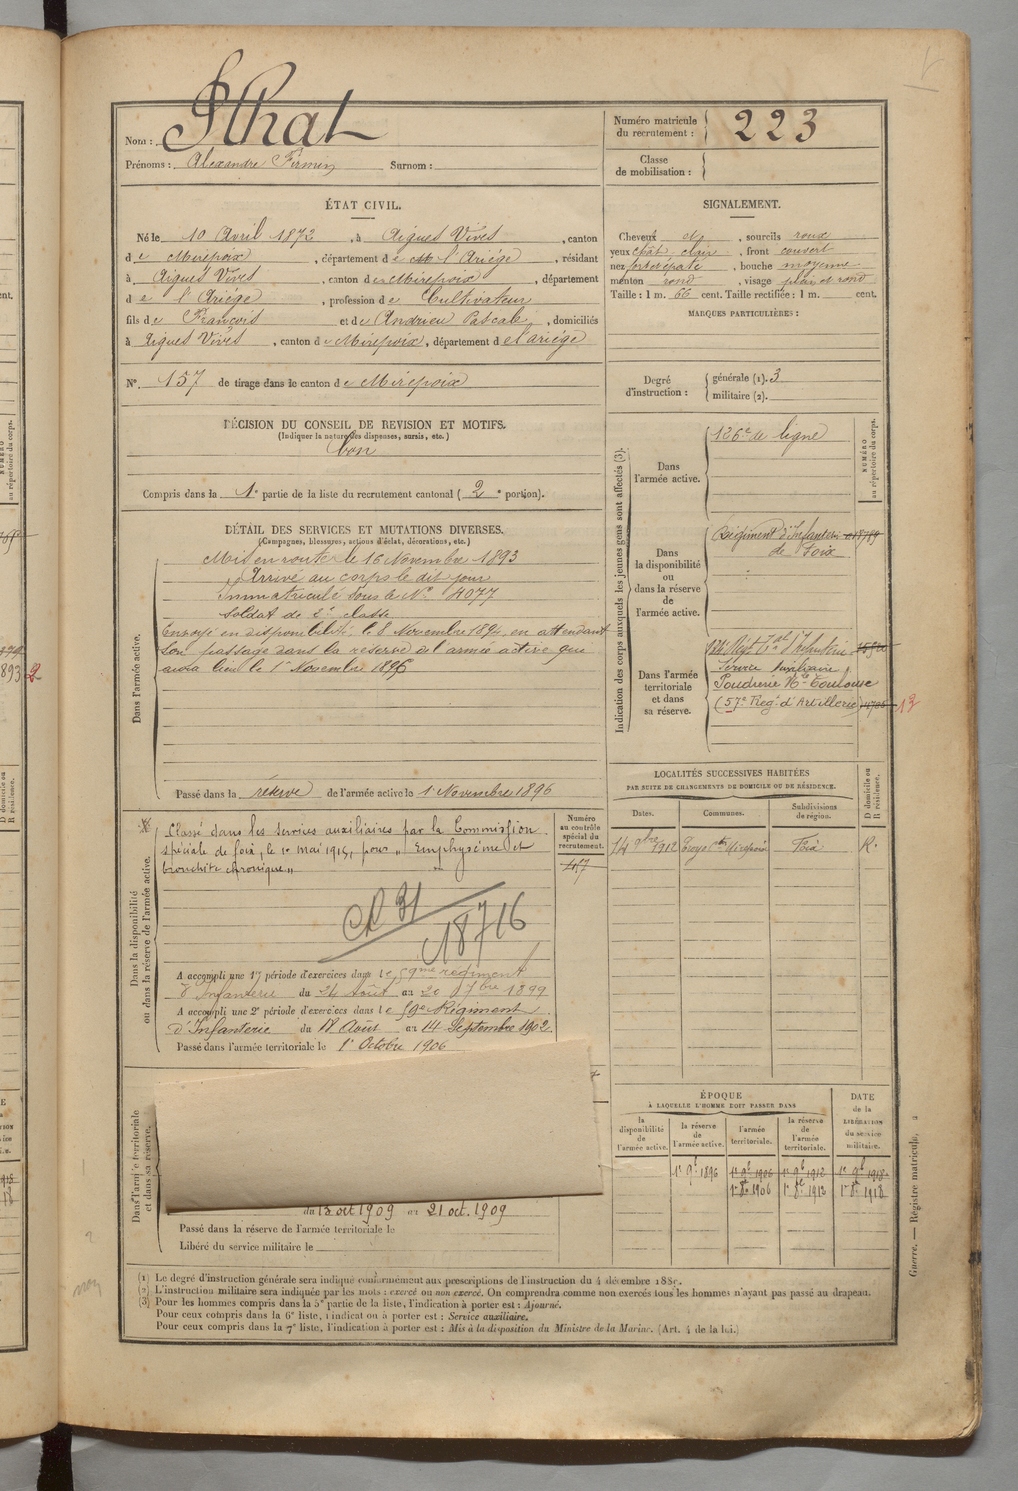 Nom : Sthat
Prénoms : Alexandre Firmin Surnom :
Numéro matricule du recrutement : 223
Classe de mobilisation :
ÉTAT CIVIL.
Né le 10 Avril 1872, à Aigues Vives, canton
de Mirepoix, département de l'Ariége, résidant
à Aigues Vives, canton de Mirepoix, département
de l'Ariége, profession de Cultivateur
fils de François et de Andrieu Pascale, domiciliés
à Aigues Vives, canton de Mirepoix, département de l'ariége
N°. 157 de tirage dans le canton de Mirepoix
SIGNALEMENT.
Cheveux, sourcils roux
yeux chât. clair, front couvert
nez fort épaté, bouche moyenne
menton rond, visage plein et rond
Taille : 1 m. 66 cent. Taille rectifiée : 1 m. cent.
MARQUES PARTICULIÈRES :
Degré d'instruction : générale (1). 3
militaire (2).
DÉCISION DU CONSEIL DE REVISION ET MOTIFS.
(Indiquer la nature des dispenses, sursis, etc.)
bon
Compris dans la 1e partie de la liste du recrutement cantonal (2e portion).
DÉTAIL DES SERVICES ET MUTATIONS DIVERSES.
(Campagnes, blessures, actions d'éclat, décorations, etc.)
Dans l'armée active.
Mis en route le 16 Novembre 1893
Arrivé au corps le dit jour
Immatriculé sous le N° 4077
Soldat de 2e classe
Envoyé en disponibilité, le 8 Novembre 1894, en attendant
son passage dans la réserve de l'armée active qui
aura lieu le 1er Novembre 1896
Passé dans la réserve de l'armée active le 1 Novembre 1896
Indication des corps auxquels les jeunes gens sont affectés (3).
NUMÉRO au répertoire du corps.
Dans l'armée active.
126e de ligne
Dans la disponibilité ou dans la réserve de l'armée active.
Régiment d'Infanterie
de Foix
Dans l'armée territoriale et dans sa réserve.
Service Auxiliaire
Poudrerie Nle Toulouse
(57e Reg. d'Artillerie) 12
LOCALITÉS SUCCESSIVES HABITÉES
PAR SUITE DE CHANGEMENTS DE DOMICILE OU DE RÉSIDENCE.
Dates. Communes. Subdivisions de région. D domicile ou R résidence.
1912 Foix R.
Dans la disponibilité ou dans la réserve de l'armée active.
Numéro au contrôle spécial du recrutement.
457
Classé dans les services auxiliaires par la Commission
spéciale de foix, le 1er mai 1915, pour " Emphysème et
bronchite chronique "
CR 31
18716
A accompli une 1re période d'exercices dans le 59me régiment
d'Infanterie du 24 Août au 20 7bre 1899
A accompli une 2e période d'exercices dans le 59e Régiment
d'Infanterie du 18 Août au 14 Septembre 1902
Passé dans l'armée territoriale le 1r Octobre 1906
Dans l'armée territoriale et dans sa réserve.
du 13 oct 1909 au 21 oct. 1909
Passé dans la réserve de l'armée territoriale le
Libéré du service militaire le
ÉPOQUE
À LAQUELLE L'HOMME DOIT PASSER DANS
DATE de la LIBÉRATION du service militaire.
la disponibilité de l'armée active.
la réserve de l'armée active.
l'armée territoriale.
la réserve de l'armée territoriale.
1r 9b 1896 1r 9b 1906 1r 9b 1912 1r 9b 1918
1r 8b 1906 1r 8b 1912 1r 8b 1918
(1) Le degré d'instruction générale sera indiqué conformément aux prescriptions de l'instruction du 4 décembre 1889.
(2) L'instruction militaire sera indiquée par les mots : exercé ou non exercé. On comprendra comme non exercés tous les hommes n'ayant pas passé au drapeau.
(3) Pour les hommes compris dans la 5e partie de la liste, l'indication à porter est : Ajourné.
Pour ceux compris dans la 6e liste, l'indication à porter est : Service auxiliaire.
Pour ceux compris dans la 7e liste, l'indication à porter est : Mis à la disposition du Ministre de la Marine. (Art. 4 de la loi.)
Guerre. — Registre matricule, 2